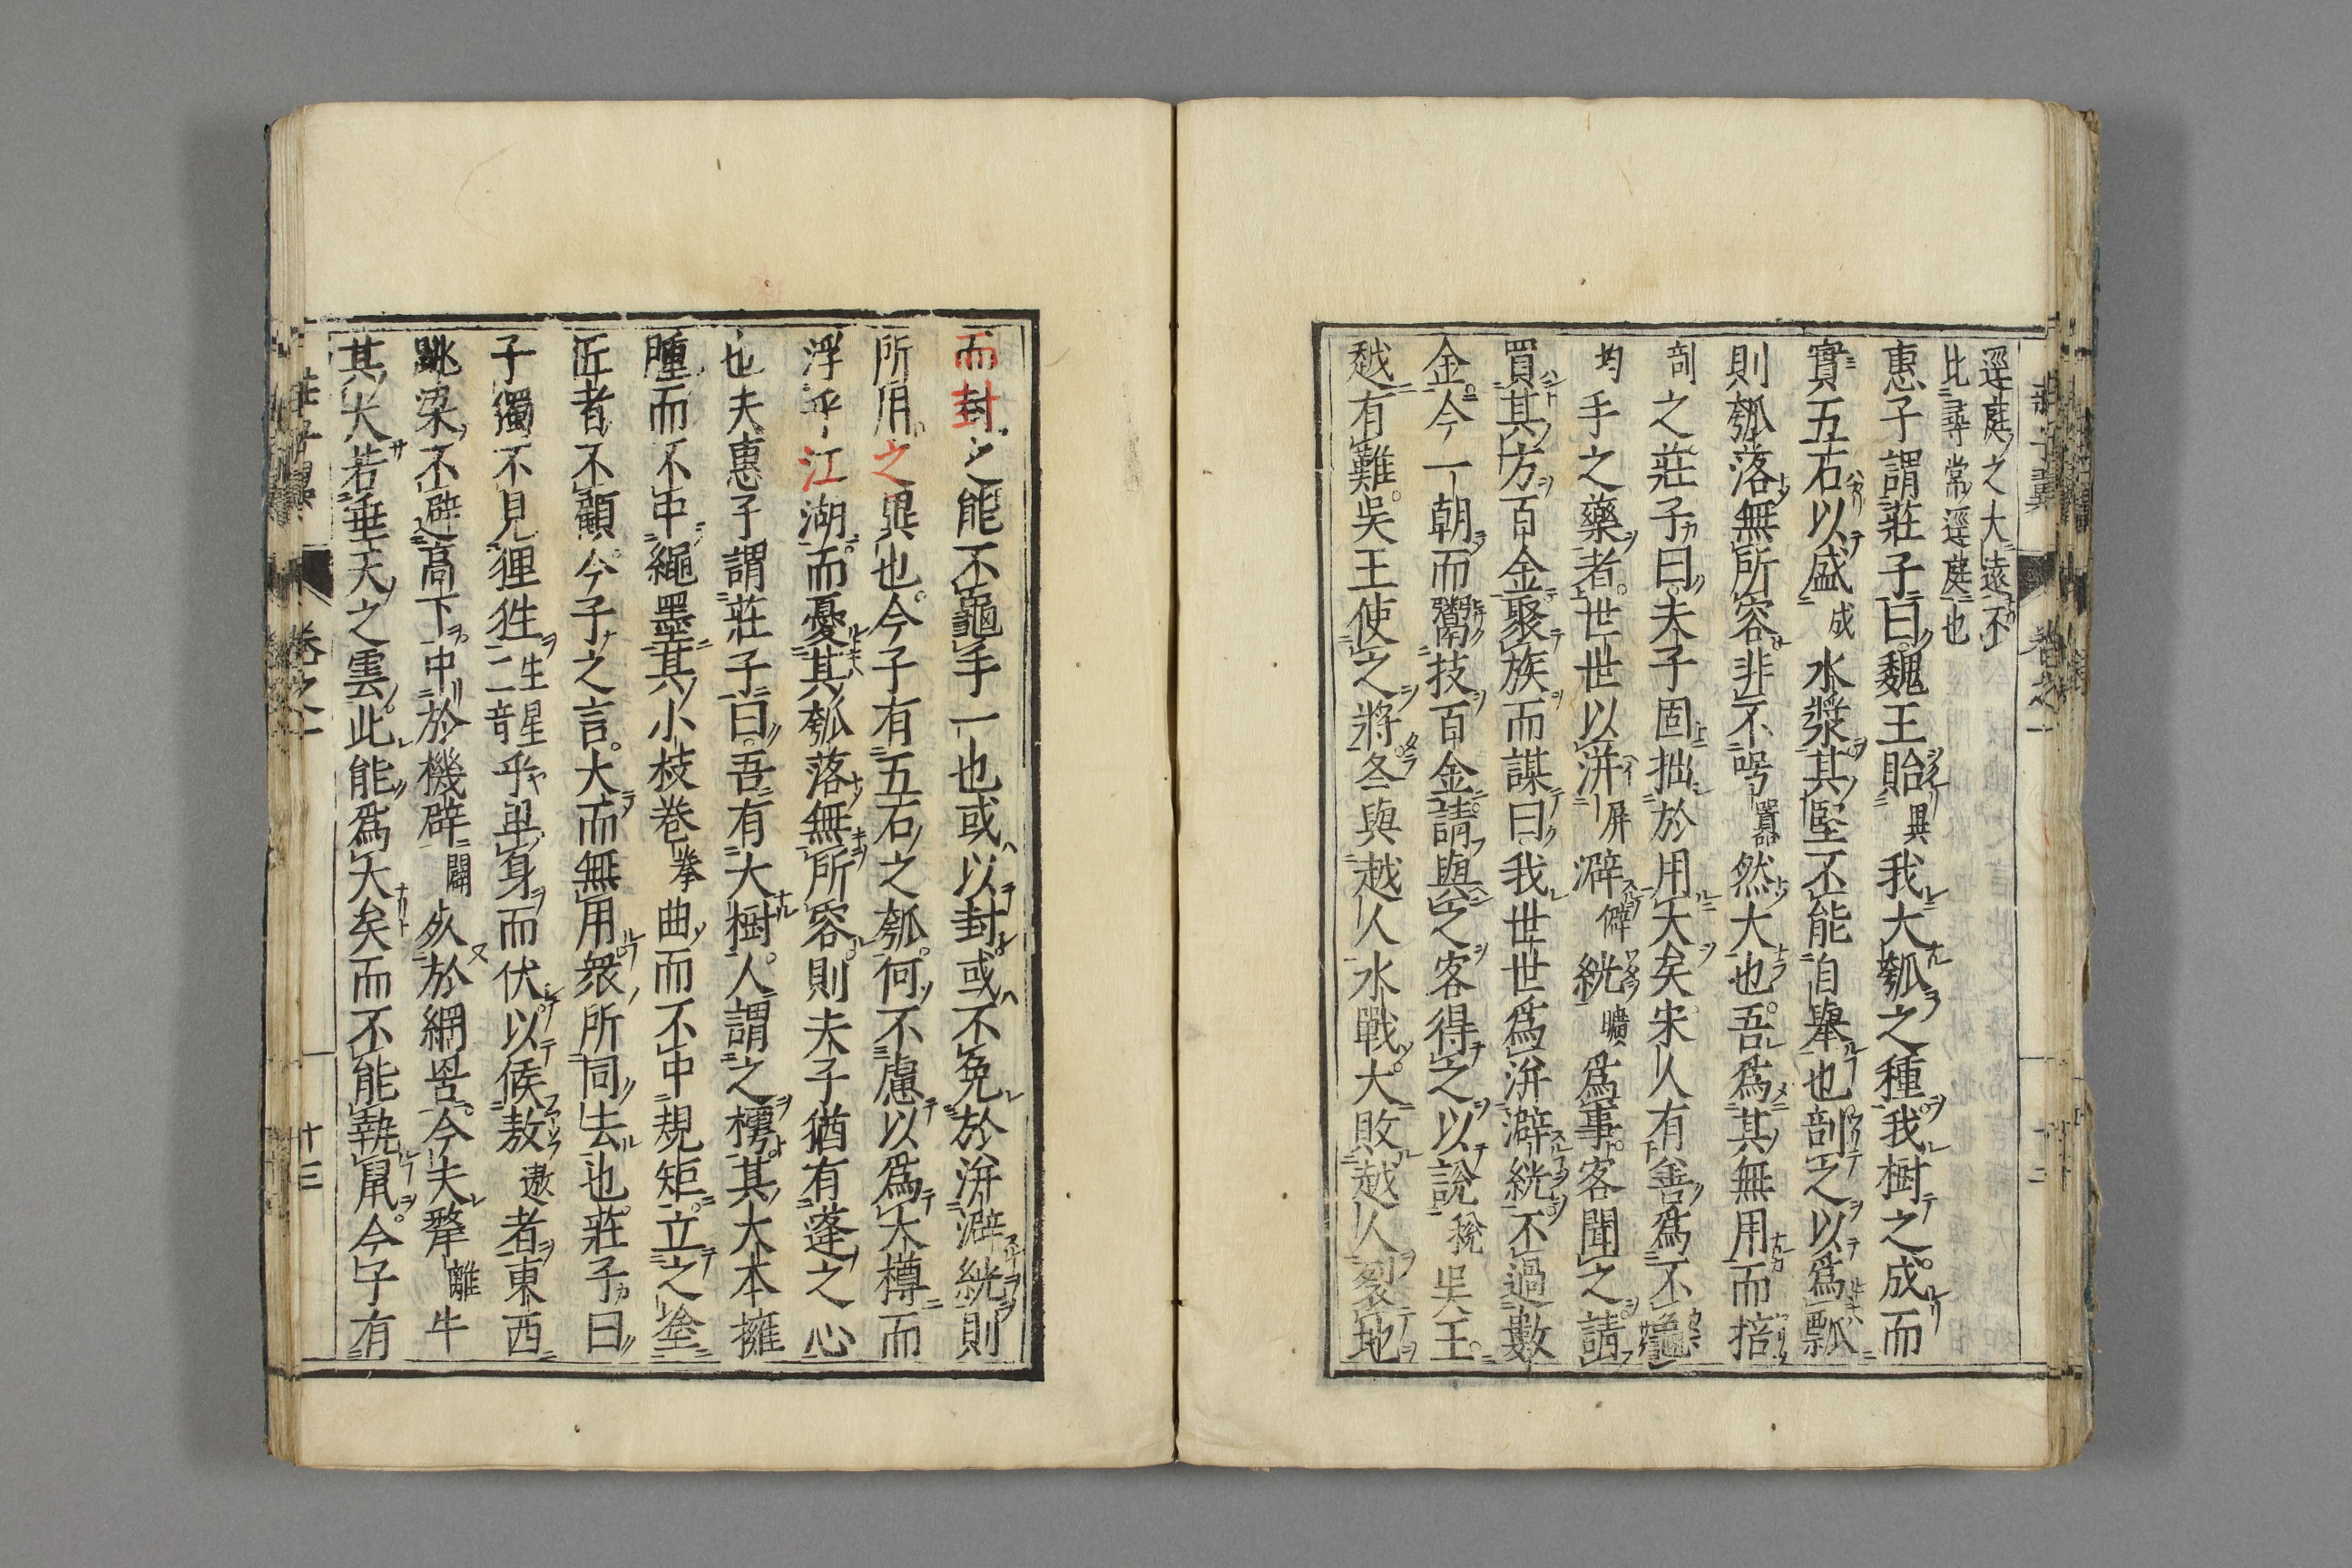 逕庭之大遠不
比尋常逕庭也
惠子謂莊子曰魏王貽異我大瓠之種我樹之成而
實五石以盛成水漿其堅不能自舉也剖之以爲瓢
則瓠落無所容非不呺囂然大也吾爲其無用而掊
剖之莊子曰夫子固拙於用大矣宋人有善爲不龜
均手之藥者世世以洴屏澼僻絖曠爲事客聞之請
買其方百金聚族而謀曰我世世爲洴澼絖不過數
金今一朝而鬻技百金請與之客得之以說稅吳王
越有難吳王使之將冬與越人水戰大敗越人裂地
而封之能不龜手一也或以封或不免於洴澼絖則
所用之異也今子有五石之瓠何不慮以爲大樽而
浮乎江湖而憂其瓠落無所容則夫子猶有蓬之心
也夫惠子謂莊子曰吾有大樹人謂之樗其大本擁
腫而不中繩墨其小枝卷拳曲而不中規矩立之塗
匠者不顧今子之言大而無用衆所同去也莊子曰
子獨不見狸狌生星二音乎卑身而伏以候敖遨者東西
跳梁不辟高下中於機辟闢死於網罟今夫斄離牛
其大若垂天之雲此能爲大矣而不能執鼠今子有
卷之一
十三